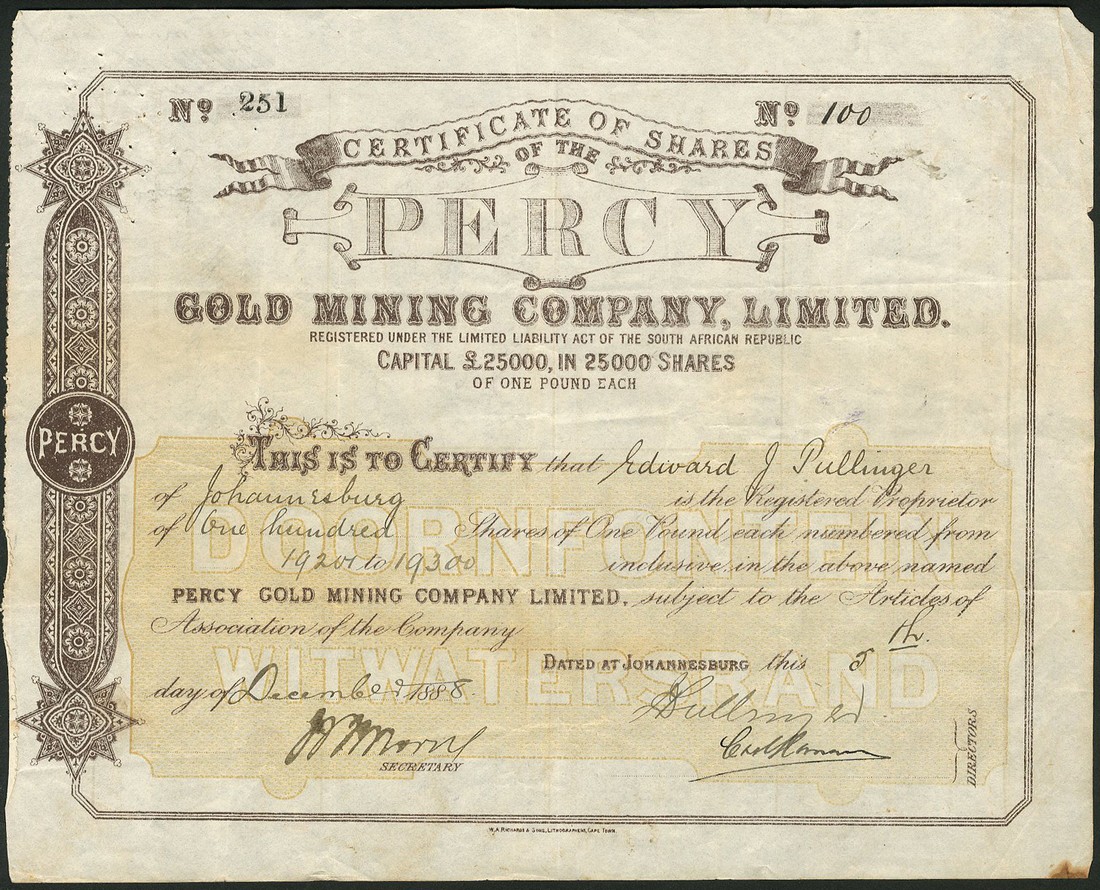 No. 251
No. 100
CERTIFICATE OF SHARES
OF THE
PERCY
GOLD MINING COMPANY, LIMITED.
REGISTERED UNDER THE LIMITED LIABILITY ACT OF THE SOUTH AFRICAN REPUBLIC
CAPITAL £25000, IN 25000 SHARES
OF ONE POUND EACH
PERCY
THIS IS TO CERTIFY that Edward J Pullinger
of Johannesburg is the Registered Proprietor
of One hundred Shares of One Pound each numbered from
19201 to 19300 inclusive in the above named
PERCY GOLD MINING COMPANY LIMITED, subject to the Articles of
Association of the Company
DOORNFONTEIN
WITWATERSRAND
DATED AT JOHANNESBURG this 5th.
day of December 1888.
Pullinger
SECRETARY
DIRECTORS
W.A. RICHARDS & SONS, LITHOGRAPHERS, CAPE TOWN.